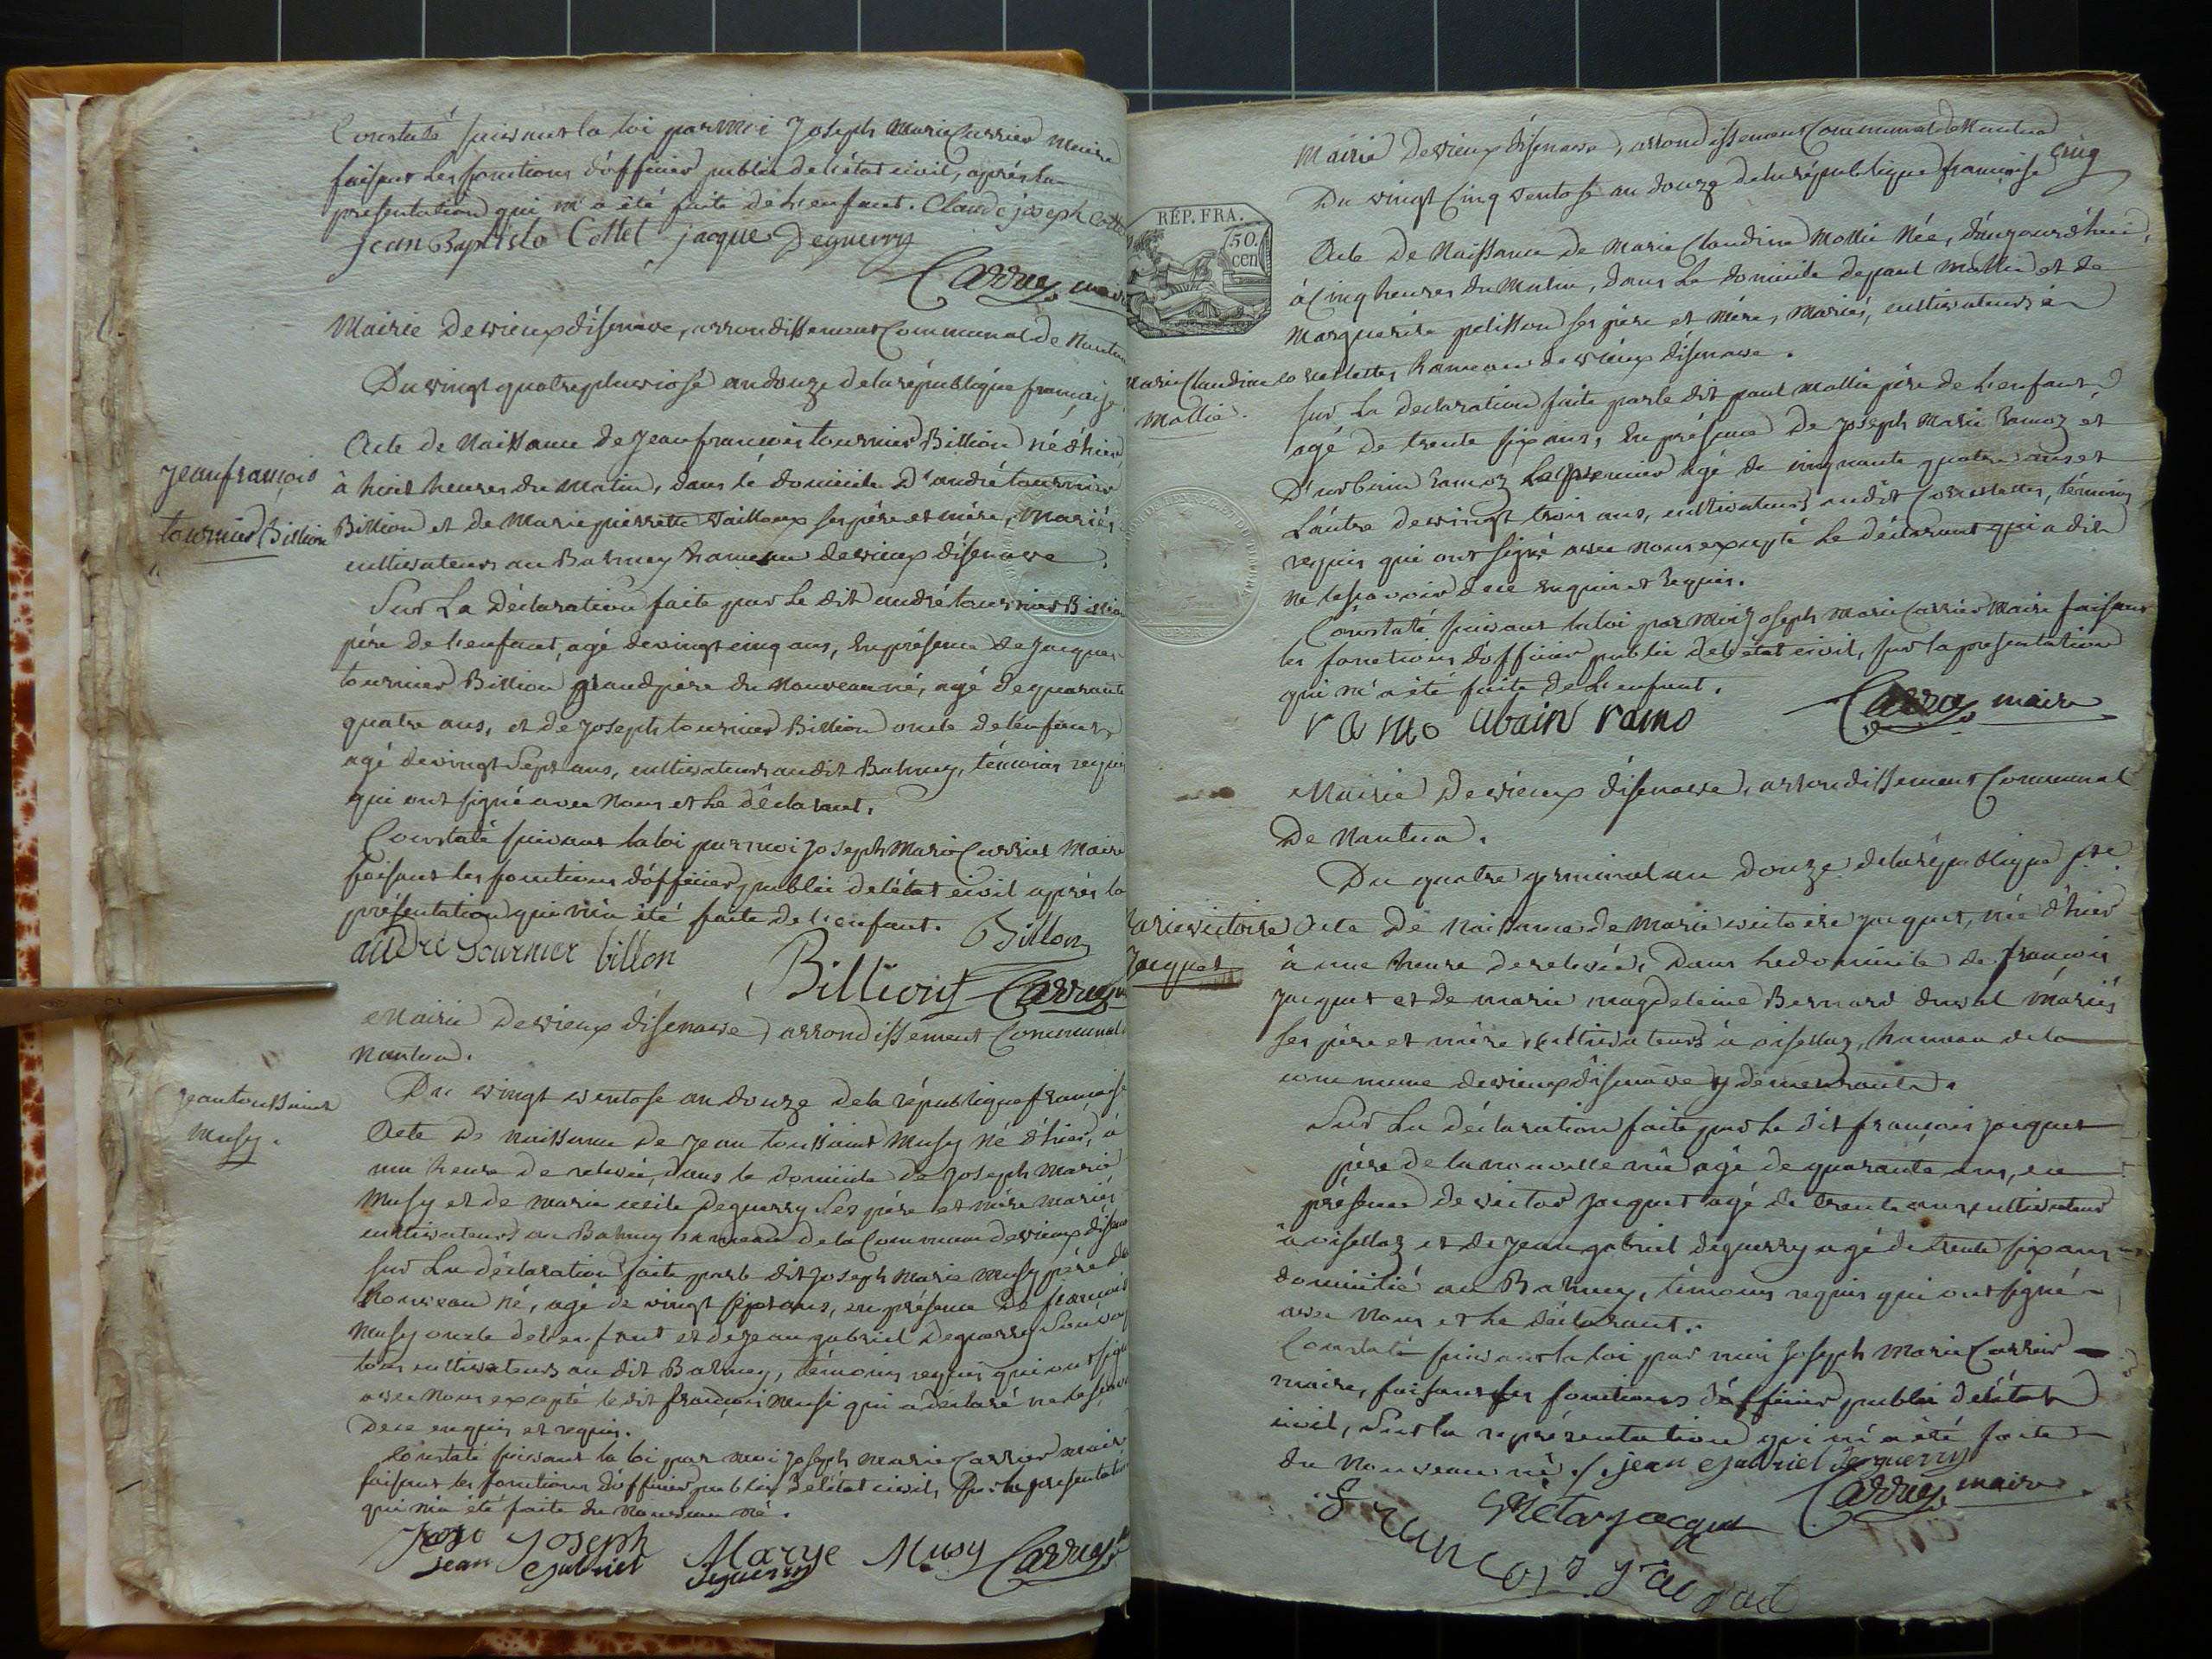 Constaté suivant la loi par moi Joseph Marie Carrier Maire
faisant les fonctions d'officier public de l'état civil, après la
présentation qui m'a été faite de l'enfant. Claude joseph
jean Baptiste Collet jacque Deguerry
Carrier maire
Mairie de vieux d'isenave, arrondissement Communal de Nantua
Du vingt quatre pluviose an douze de la république française
Acte de Naissance de Jean françois tournier Billion né d'hier
jean françois
à huit heures du matin, dans le domicile D'andré tournier
tournier Billion
Billion et de Marie pierrette vailloux ses père et mère, Mariés
cultivateurs au Balmey hameau de vieux d'isenave
Sur La Déclaration faite par Le dit andré tournier Billion
père de l'enfant, agé de vingt cinq ans, En présence de Jacques
tournier Billion grand père du Nouveau né, agé de quarante
quatre ans, et de Joseph tournier Billion oncle de l'enfant,
agé de vingt Sept ans, cultivateurs audit Balmey, témoins requis
qui ont signé avec Nous et Le déclarant.
Constaté suivant la loi par moi Joseph Marie Carrier Maire
faisant les fonctions d'officier public de l'état civil après la
présentation qui m'a été faite de l'enfant.
andré Tournier billon Billon
Billiont Carrier
Mairie De vieux d'isenave, arrondissement Communal
Nantua.
Du vingt ventose an douze de la république française
jean toussaint
Musy.
Acte De naissance de Jean toussaint Musy né d'hier, à
une heure de relevée, dans le domicile de Joseph Marie
Musy et de Marie cecile Deguerry Ses père et mère mariés
cultivateurs au Balmey hameau de la Commune de vieux d'isenave
sur La déclaration faite par le dit Joseph Marie Musy père du
Nouveau né, agé de vingt sept ans, en présence De françois
Musy oncle de l'enfant et de Jean gabriel Deguerry
tous cultivateurs au dit Balmey, témoins requis qui ont signé
avec Nous excepté le dit françois Musi qui a déclaré ne le
De ce enquis et requis.
Constaté suivant la loi par moi Joseph Marie Carrier maire
faisant les fonctions d'officier public de l'état civil, Sur la présentation
qui m'a été faite du Nouveau né.
Joseph Marye Musy Carrier
jean gabriel deguerry
Mairie De vieux d'isenave, arrondissement Communal de Nantua
cinq
Du vingt Cinq ventose an douze de la république française
RÉP. FRA.
50.
cen
Acte De Naissance de Marie Claudine Mollie Née, d'aujourd'hui,
à Cinq heures du Matin, dans Le domicile de paul Mollie et de
Marguerite pelisson ses père et Mère, Mariés, cultivateurs à
Marie Claudine
Mollie.
hameau de vieux d'isenave.
sur La déclaration faite par le dit paul Mollie père de l'enfant
agé de trente six ans, En présence De Joseph Marie Ramoz et
D'urbain Ramoz Le premier agé de cinquante quatre ans et
L'autre de vingt trois ans, cultivateurs audit témoins
requis qui ont signé avec nous excepté Le déclarant qui a dit
ne le scavoir de ce enquis et requis.
Constaté suivant la loi par Moi Joseph Marie Carrier Maire faisant
les fonctions d'officier public de l'état civil, sur la présentation
qui m'a été faite de L'enfant.
ramo ubain ramo Carrier maire
Mairie De vieux d'isenave, arrondissement Communal
De Nantua.
Du quatre germinal an douze de la république fse
Marie victoire
Jacquet
Acte De Naissance de Marie victoire jacquet, née d'hier
à une heure de relevée, Dans le domicile de françois
jacquet et de marie magdeleine Bernard duval mariés
ses père et mère cultivateurs à oisellaz, hameau de la
commune de vieux d'isenave y demeurants.
Sur La déclaration faite par Le dit françois jacquet
père de la nouvelle née agé de quarante ans, en
présence de victor jacquet agé de trente ans cultivateur
à oisellaz et de Jean gabriel deguerry agé de trente six ans
domicilié au Balmey, témoins requis qui ont signé
avec Nous et Le déclarant.
Constaté suivant la loi par moi Joseph Marie Carrier
maire, faisant les fonctions d'officier public de l'état
civil, Sur la représentation qui m'a été faite
du Nouveau né. jean gabriel deguerry
Victor jacquet Carrier maire
François jacquet